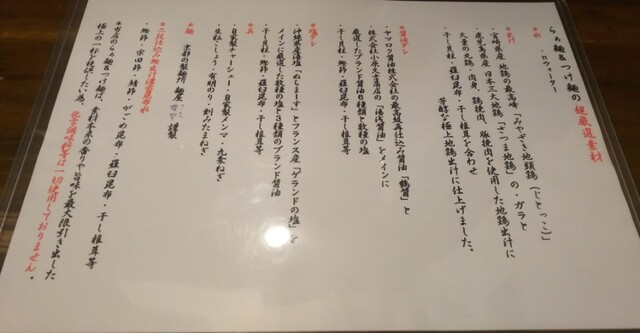 らぁ麺&つけ麺の超厳選素材
*水
・ロウォーター
*出汁
・宮崎県産 地鶏の最高峰「みやざき地頭鶏(じとっこ)」
・鹿児島県産 日本三大地鶏「さつま地鶏」の、ガラと
大量の丸鶏、肉身、鶏挽肉、豚挽肉を使用した地鶏出汁に
貝柱・鰹節・羅臼昆布・干し椎茸を合わせ
芳醇な極上地鶏出汁に仕上げました。
*醤油ダレ
・ヤマロク醤油株式会社の最高級再仕込み醤油「鶴醤」と
株式会社小原久吉商店の「湯浅醤油」をメインに
厳選したブランド醤油6種類と数種の塩
・干し貝柱・鰹節・羅臼昆布・干し椎茸等
*塩ダレ
・沖縄県産海塩「ぬちまーす」とフランス産「ゲランドの塩」を
メインに厳選した数種の塩と3種類のブランド醤油
・干し貝柱・鰹節・羅臼昆布・干し椎茸等
*具
・自家製チャーシュー・自家製メンマ・九条ねぎ
・生粒こしょう・有明のり・刻みたまねぎ
*麺
京都の製麺所 麺屋 謹製
*二段仕込み鰹出汁羅臼昆布水
・鰹節・宗田節・鯖節・がごめ昆布・羅臼昆布・干し椎茸等
*当店のらぁ麺&つけ麺は、素材本来の香りや旨味を最大限引き出した
極上の一杯を提供したい為、化学調味料等は一切使用しておりません。